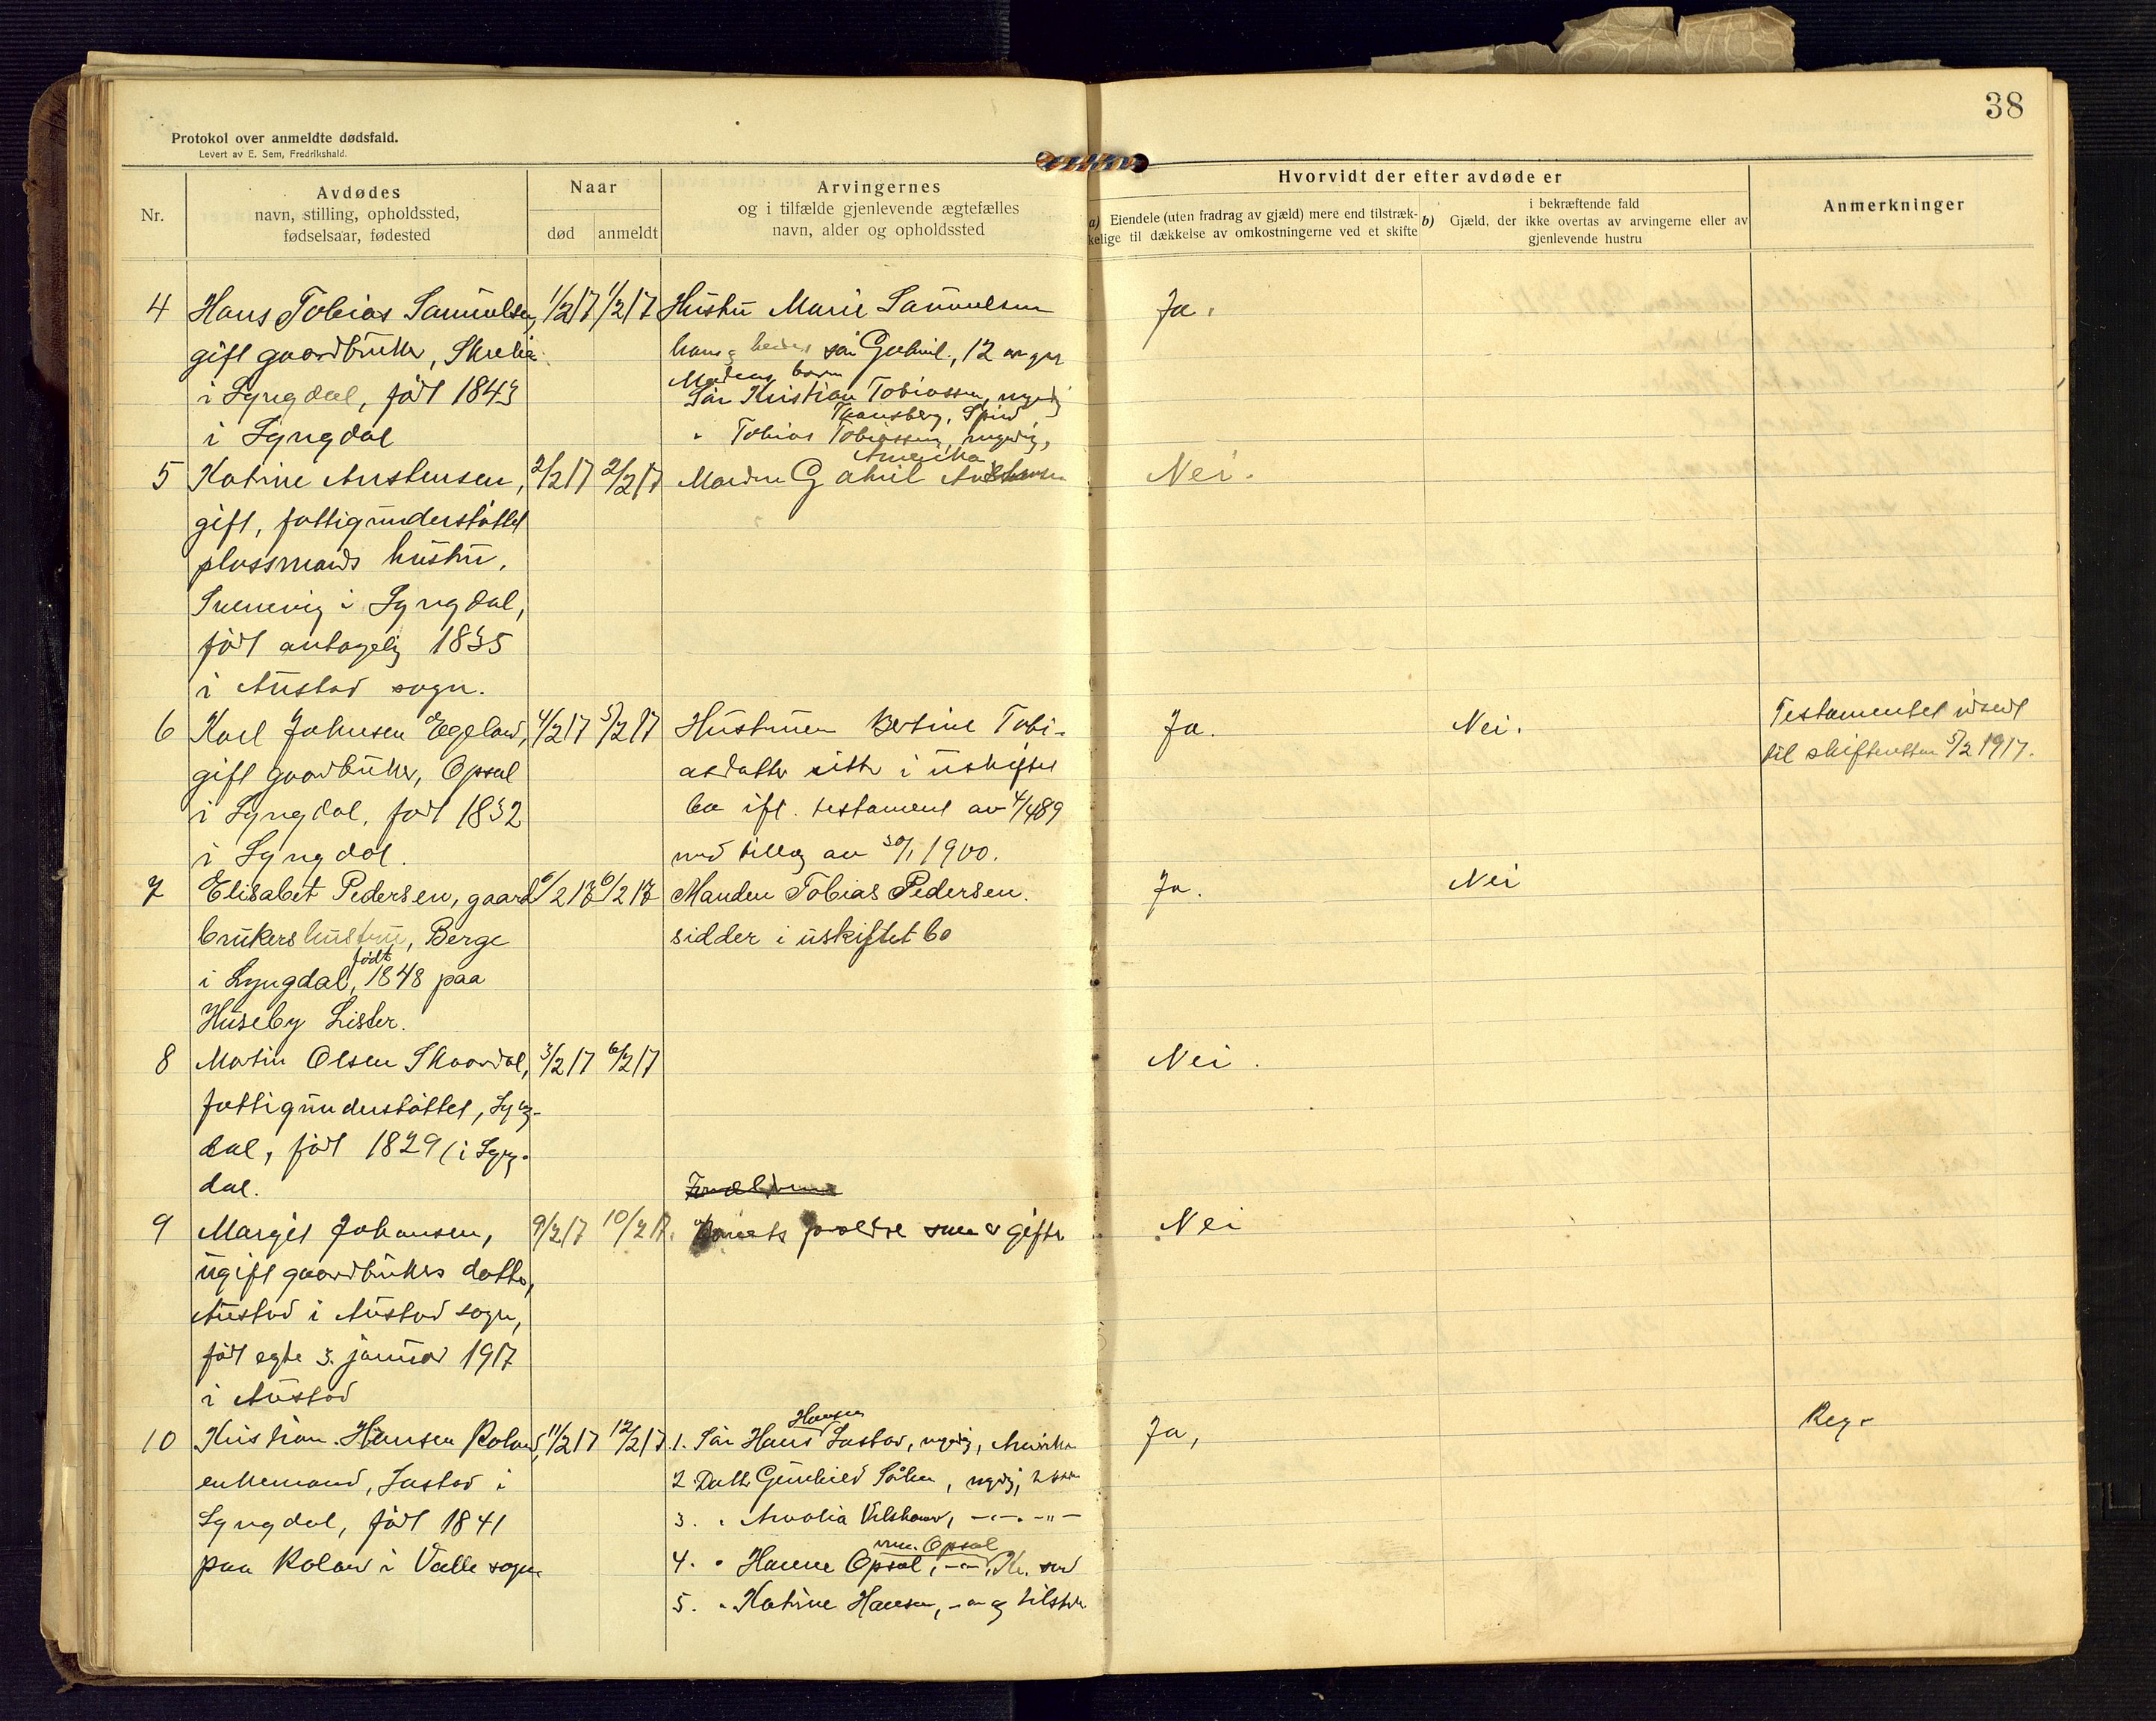 38
Protokol over anmeldte dødsfald.
Levert av E. Sem, Fredrikshald.
Nr.
Avdødes
navn, stilling, opholdssted,
fødselsaar, fødested
Naar
død
anmeldt
Arvingernes
og i tilfælde gjenlevende ægtefælles
navn, alder og opholdssted
Hvorvidt der efter avdøde er
a) Eiendele (uten fradrag av gjæld) mere end tilstræk-
kelige til dækkelse av omkostningerne ved et skifte
i bekræftende fald
b) Gjæld, der ikke overtas av arvingerne eller av
gjenlevende hustru
Anmerkninger
4 Hans Tobias Samuelsen, 1/2 17 1/2 17 Hustru Marie Samuelsen Ja.
gift gaardbruker, Skrelia
hans søn Gabriel, 12 aar gml
i Lyngdal, født 1843
børn
Søn Kristian Tobiassen, myndig
i Lyngdal
Spind
" Tobias Tobiassen, myndig,
Amerika
5 Katrine Austensen, 2/2 17 2/2 17 Manden Gabriel Austensen Nei.
gift, fattigunderstøttet
plassmands hustru,
Svenevig i Lyngdal,
født antagelig 1835
i Austad sogn.
6 Karl Johnsen Egeland, 4/2 17 5/2 17 Hustruen Bertine Tobi- Ja. Nei. Testamentet utsendt
gift gaardbruker, Opsal asdatter sitter i uskiftet til skifteretten 5/2 1917.
i Lyngdal, født 1832 bo ifl. testament av 4/4 89
i Lyngdal. med tillæg av 30/1 1900.
7 Elisabet Pedersen, gaard 6/2 17 6/2 17 Manden Tobias Pedersen. Ja. Nei
brukers hustru, Berge sidder i uskiftet bo
født
i Lyngdal, 1848 paa
Huseby Lister.
8 Martin Olsen Skaardal, 3/2 17 6/2 17 Nei.
fattigunderstøttet, Lyng-
dal, født 1829 i Lyng-
dal.
Forældrene
9 Margit Johansen, 9/2 17 10/2 17. Barnets forældre som er gifte Nei
ugift gaardbrukers datter,
Austad i Austad sogn,
født egte 3. januar 1917
i Austad
Hansen
10 Kristian Hansen Roland, 11/2 17 12/2 17. 1. Søn Hans Jastad, myndig, Amerika Ja, Reg.
enkemand, Jastad i 2 Datter Gunhild, myndig,
Lyngdal, født 1841 3. " Amalia
Opsal
paa Roland i Valle sogn 4. " Hanne Opsal,
5. " Katrine Hansen,